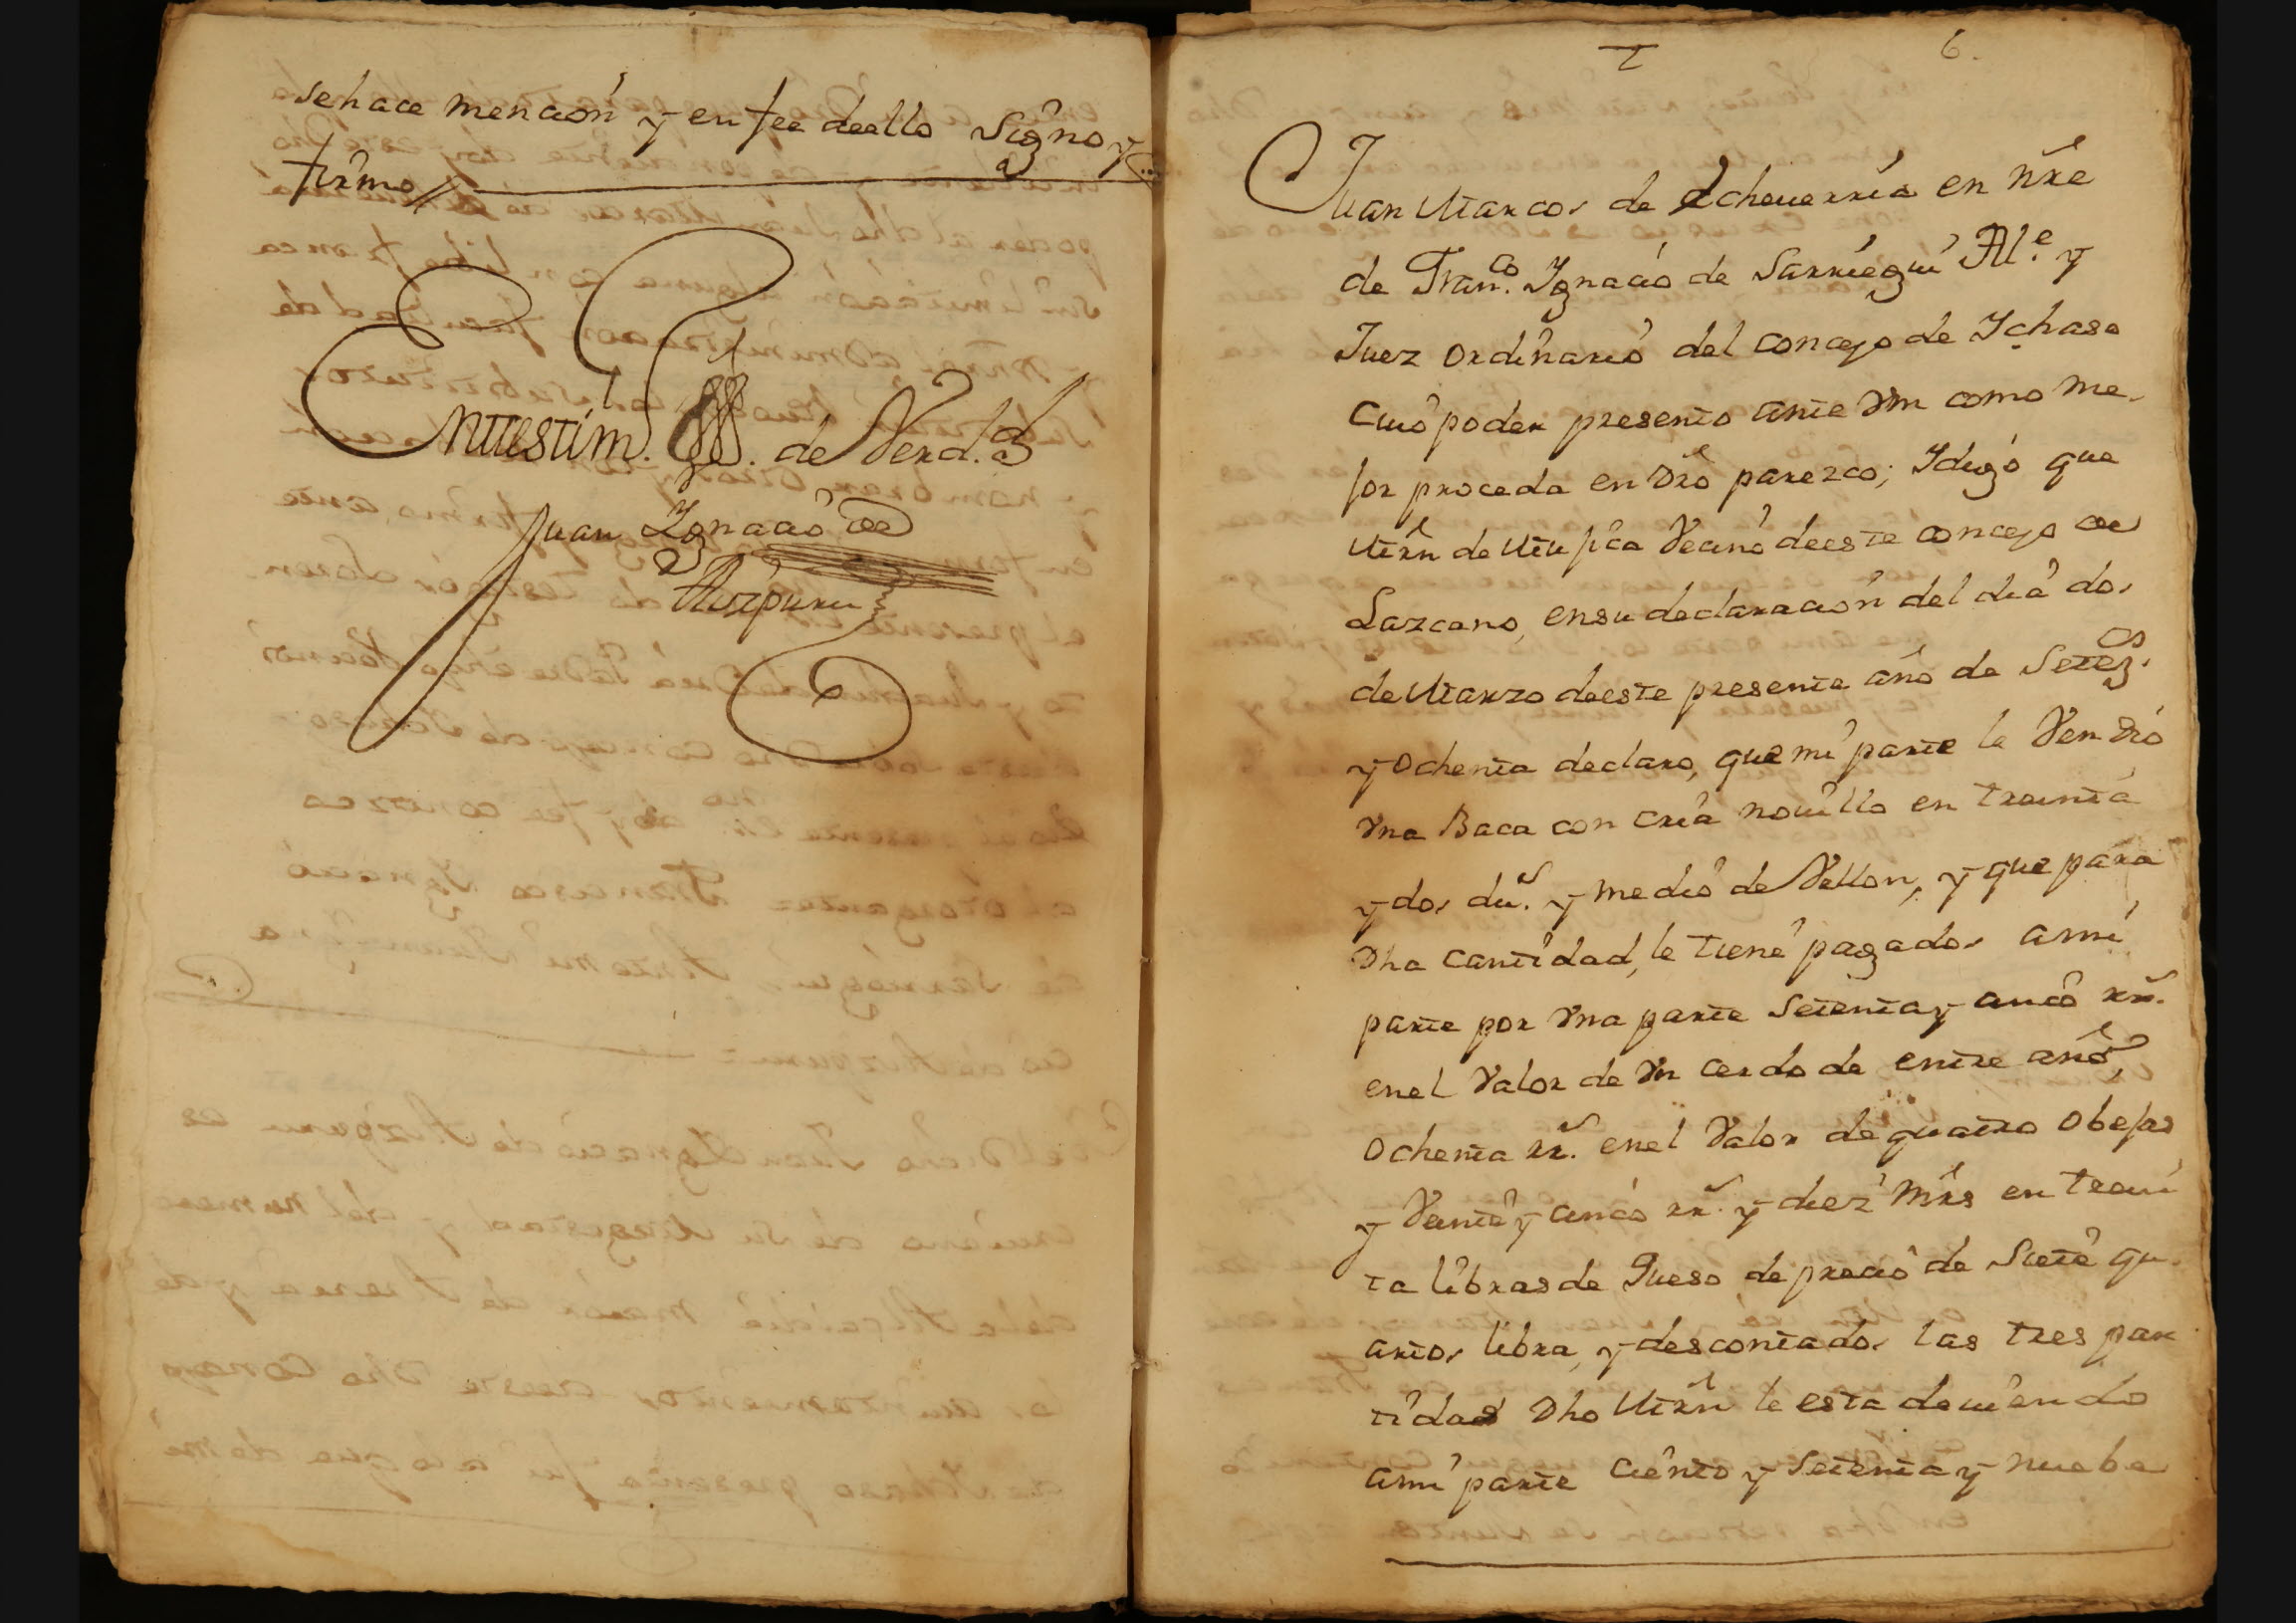 se hace mención y en fee deello Signo y
firmo
En testim.º de Verd.d
Juan Ygnacio de
Aizpuru
6.
Juan Marcos de Echeuerria en nre
de Fran.co Ygnacio de Sarriegui Al.e y
Juez ordinario del concejo de Ychaso
cuio poder presento ante Vm como me-
jor proceda en dro parezco, Y digo que
Mrn de Mujica Vecino deeste concejo de
Lazcano, en su declaracion del dia dos
de Marzo deeste presente año de Setez.os
y ochenta declaro, que mi parte le Vendio
Vna Baca con cria nouillo en treinta
y dos du.s y medio de Vellon, y que para
dha cantidad, le tiene pagados a mi
parte por Vna parte Setenta y cinco rr.s
en el Valor de Vn cerdo de entre año,
ochenta rr.s en el Valor de quatro obejas
y Veinte y cinco rr.s y diez mrs en trein
ta libras de Queso de precio de Siete qu-
artos libra, y descontados las tres par
tidas dho Mrn le esta deuiendo
a mi parte ciento y Setenta y nuebe